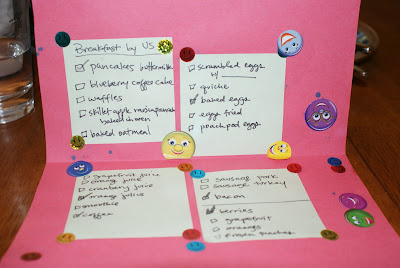 Breakfast by US
pancakes buttermilk
blueberry coffee cake
waffles
skillet apple
baked
baked oatmeal
scrambled eggs
w/
quiche
baked eggs
eggs fried
poached eggs
grapefruit juice
orang juice
cranberry juice
orang julius
smoothie
coffee
sausage pork
sausage turkey
bacon
berries
grapefruit
orang
frozen peaches